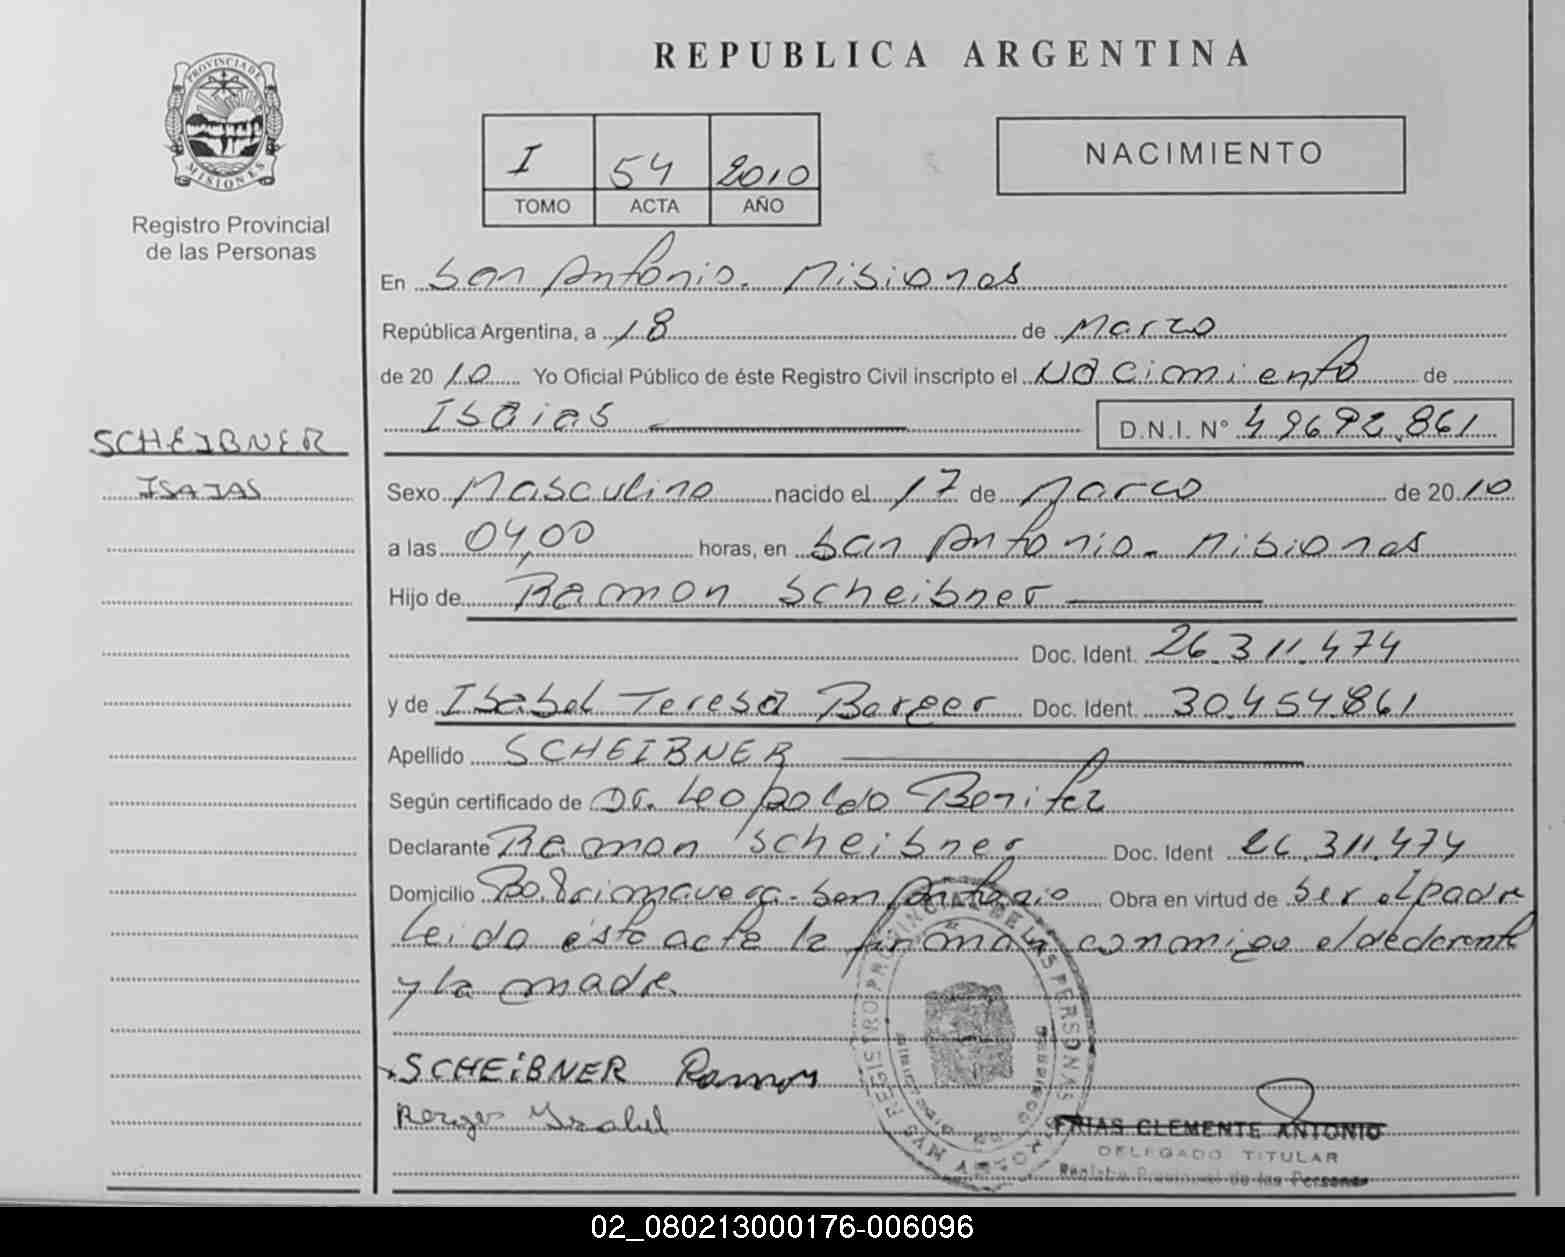 REPUBLICA ARGENTINA
PROVINCIA DE
MISIONES
Registro Provincial
de las Personas
I 54 2010
TOMO ACTA AÑO
NACIMIENTO
En San Antonio. Misiones
República Argentina, a 18 de Marzo
de 2010 Yo Oficial Público de éste Registro Civil inscripto el Nacimiento de
Isaias D.N.I. N° 49692.861
SCHEIBNER
ISAIAS
Sexo Masculino nacido el 17 de Marzo de 2010
a las 04,00 horas, en San Antonio. Misiones
Hijo de Ramon Scheibner
Doc. Ident. 26.311.474
y de Isabel Teresa Berger Doc. Ident. 30.454.861
Apellido SCHEIBNER
Según certificado de Dr. Leopoldo Benitez
Declarante Ramon Scheibner Doc. Ident 26.311.474
Domicilio San Antonio Obra en virtud de Ser el padre
Leido esta acta la firman conmigo el declarante
y la madre
SCHEiBNER Ramon
Berger Isabel
REGISTRO PROVINCIAL DE LAS PERSONAS
FRIAS CLEMENTE ANTONIO
DELEGADO TITULAR
Registro Provincial de las Personas
02_080213000176-006096